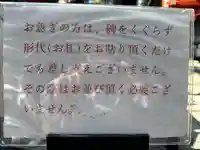 お急ぎの方は、碑をくぐらず
形代(お札)をお貼り頂くだけ
でも差しさえございません。
その際はお並び頂く必要ござ
いません。